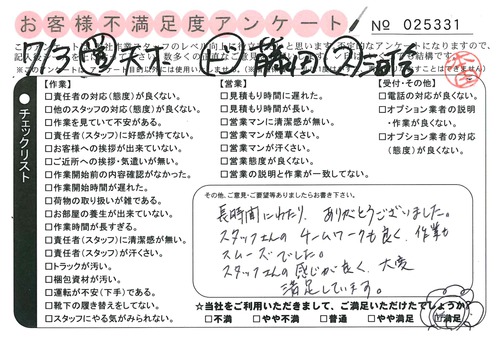 お客様不満足度アンケート
No 025331
チェックリスト
【作業】
□責任者の対応(態度)が良くない。
□他のスタッフの対応(態度)が良くない。
□作業を見ていて不安がある。
□責任者(スタッフ)に好感が持てない。
□お客様への挨拶が出来ていない。
□ご近所への挨拶・気遣いが無い。
□作業開始前の内容確認がなかった。
□作業開始時間が遅れた。
□荷物の取り扱いが雑である。
□お部屋の養生が出来ていない。
□作業時間が長すぎる。
□責任者(スタッフ)に清潔感が無い。
□責任者(スタッフ)が汗くさい。
□トラックが汚い。
□梱包資材が汚い。
□運転が不安(下手)である。
□靴下の履き替えをしてない。
□スタッフにやる気がみられない。
【営業】
□見積もり時間に遅れた。
□見積もり時間が長い。
□営業マンに清潔感が無い。
□営業マンが煙草くさい。
□営業マンが汗くさい。
□営業態度が良くない。
□営業の説明と作業が一致してない。
【受付・その他】
□電話の対応が良くない。
□オプション業者の説明
・作業が良くない。
□オプション業者の対応
(態度)が良くない。
その他、ご意見・ご要望等ありましたらお書き下さい。
長時間にわたり、ありがとうございました。
スタッフさんの チームワークも良く、作業も
スムーズでした。
スタッフさんの感じが良く、大変
満足しています。
☆当社をご利用いただきまして、ご満足いただけたでしょうか？
□不満 □やや不満 □普通 □やや満足 満足